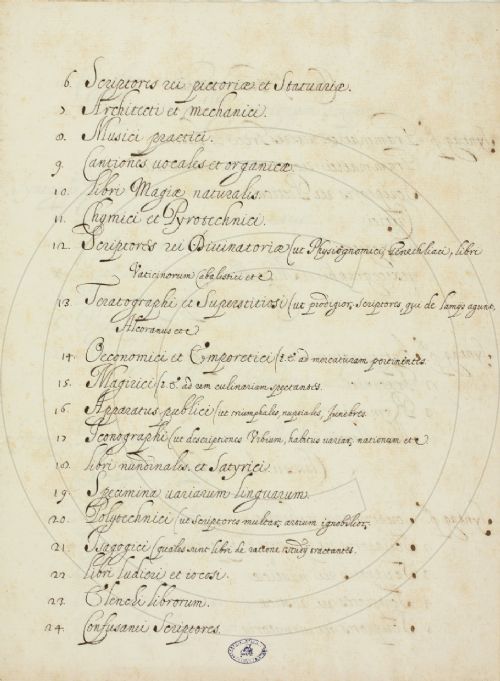 6. Scriptores rei pictoriæ et Statuariæ.
7. Architecti et mechanici.
8. Musici practici.
9. Cantiones vocales et organicæ.
10. libri Magiæ naturalis.
11. Chymici et Pyrotechnici.
12. Scriptores rei Divinatoriæ (ut Physiognomici, Genethliaci, libri
Vaticinorum Cabalistici et c
13. Teratographi et Superstitiosi (ut prodigior, Scriptores, qui de lamys agunt,
Alcoranus et c
14. Oeconomici et Emporetici (i.e. ad mercaturam pertinentes.
15. Magirici (i.e. ad rem culinariam spectantes.
16. Apparatus publici (ut triumphales, nuptiales, funebres.
17 Iconographi (ut descriptiones Urbium, habitus variar, nationum et c
18. libri nundinales et Satyrici.
19. Specimina variarum linguarum.
20. Polytechnici (ut Scriptores multar, artium ignobilior,
21. Isagogici (quales sunt libri de ratione study tractantes.
22. libri ludicri et iocosi.
23. Elenchi librorum.
24. Confusanei Scriptores.